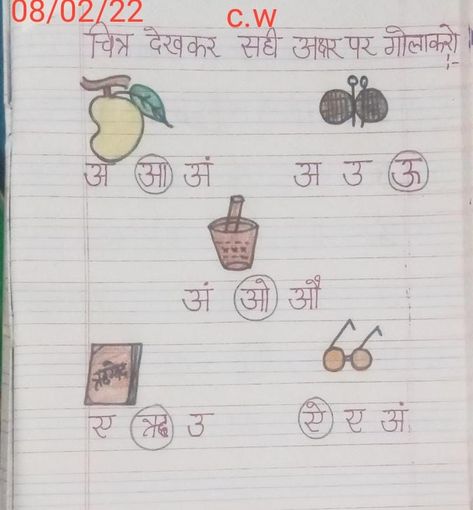 08/02/22 C.W
चित्र देखकर सही अक्षर पर गोला करो :-
अ आ अं
अ उ ऊ
अं ओ औ
ऋग्वेद
ए ऋ उ
ऐ ए अं